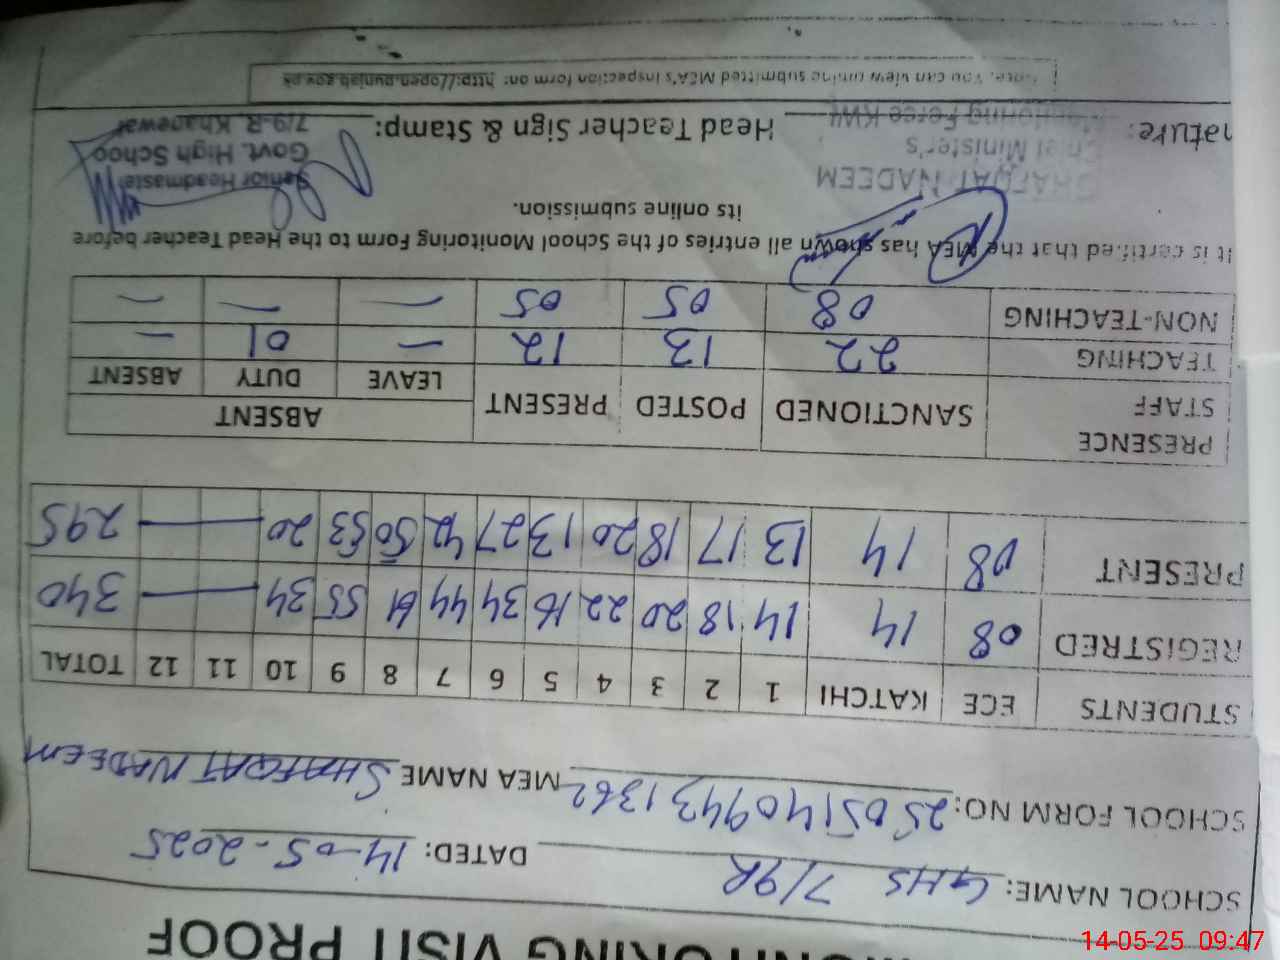 MONITORING VISIT PROOF
SCHOOL NAME: GHS 7/9R DATED: 14-05-2025
SCHOOL FORM NO: 2505140943 1362 MEA NAME SHAFQAT NADEEM
STUDENTS ECE KATCHI 1 2 3 4 5 6 7 8 9 10 11 12 TOTAL
REGISTRED 08 14 14 18 20 22 16 34 44 61 55 34 — 340
PRESENT 08 14 13 17 18 20 13 27 42 50 53 20 — 295
PRESENCE STAFF SANCTIONED POSTED PRESENT ABSENT
LEAVE DUTY ABSENT
TEACHING 22 13 12 — 01 —
NON-TEACHING 08 05 05 — — —
It is certified that the MEA has shown all entries of the School Monitoring Form to the Head Teacher before
its online submission.
SHAFQAT NADEEM
Chief Minister's
Monitoring Force KWL
nature: Head Teacher Sign & Stamp:
Senior Headmaster
Govt. High School
7/9-R. Khanewal
Note: You can view online submitted MEA's inspection form on: http://open.punjab.gov.pk
14-05-25 09:47